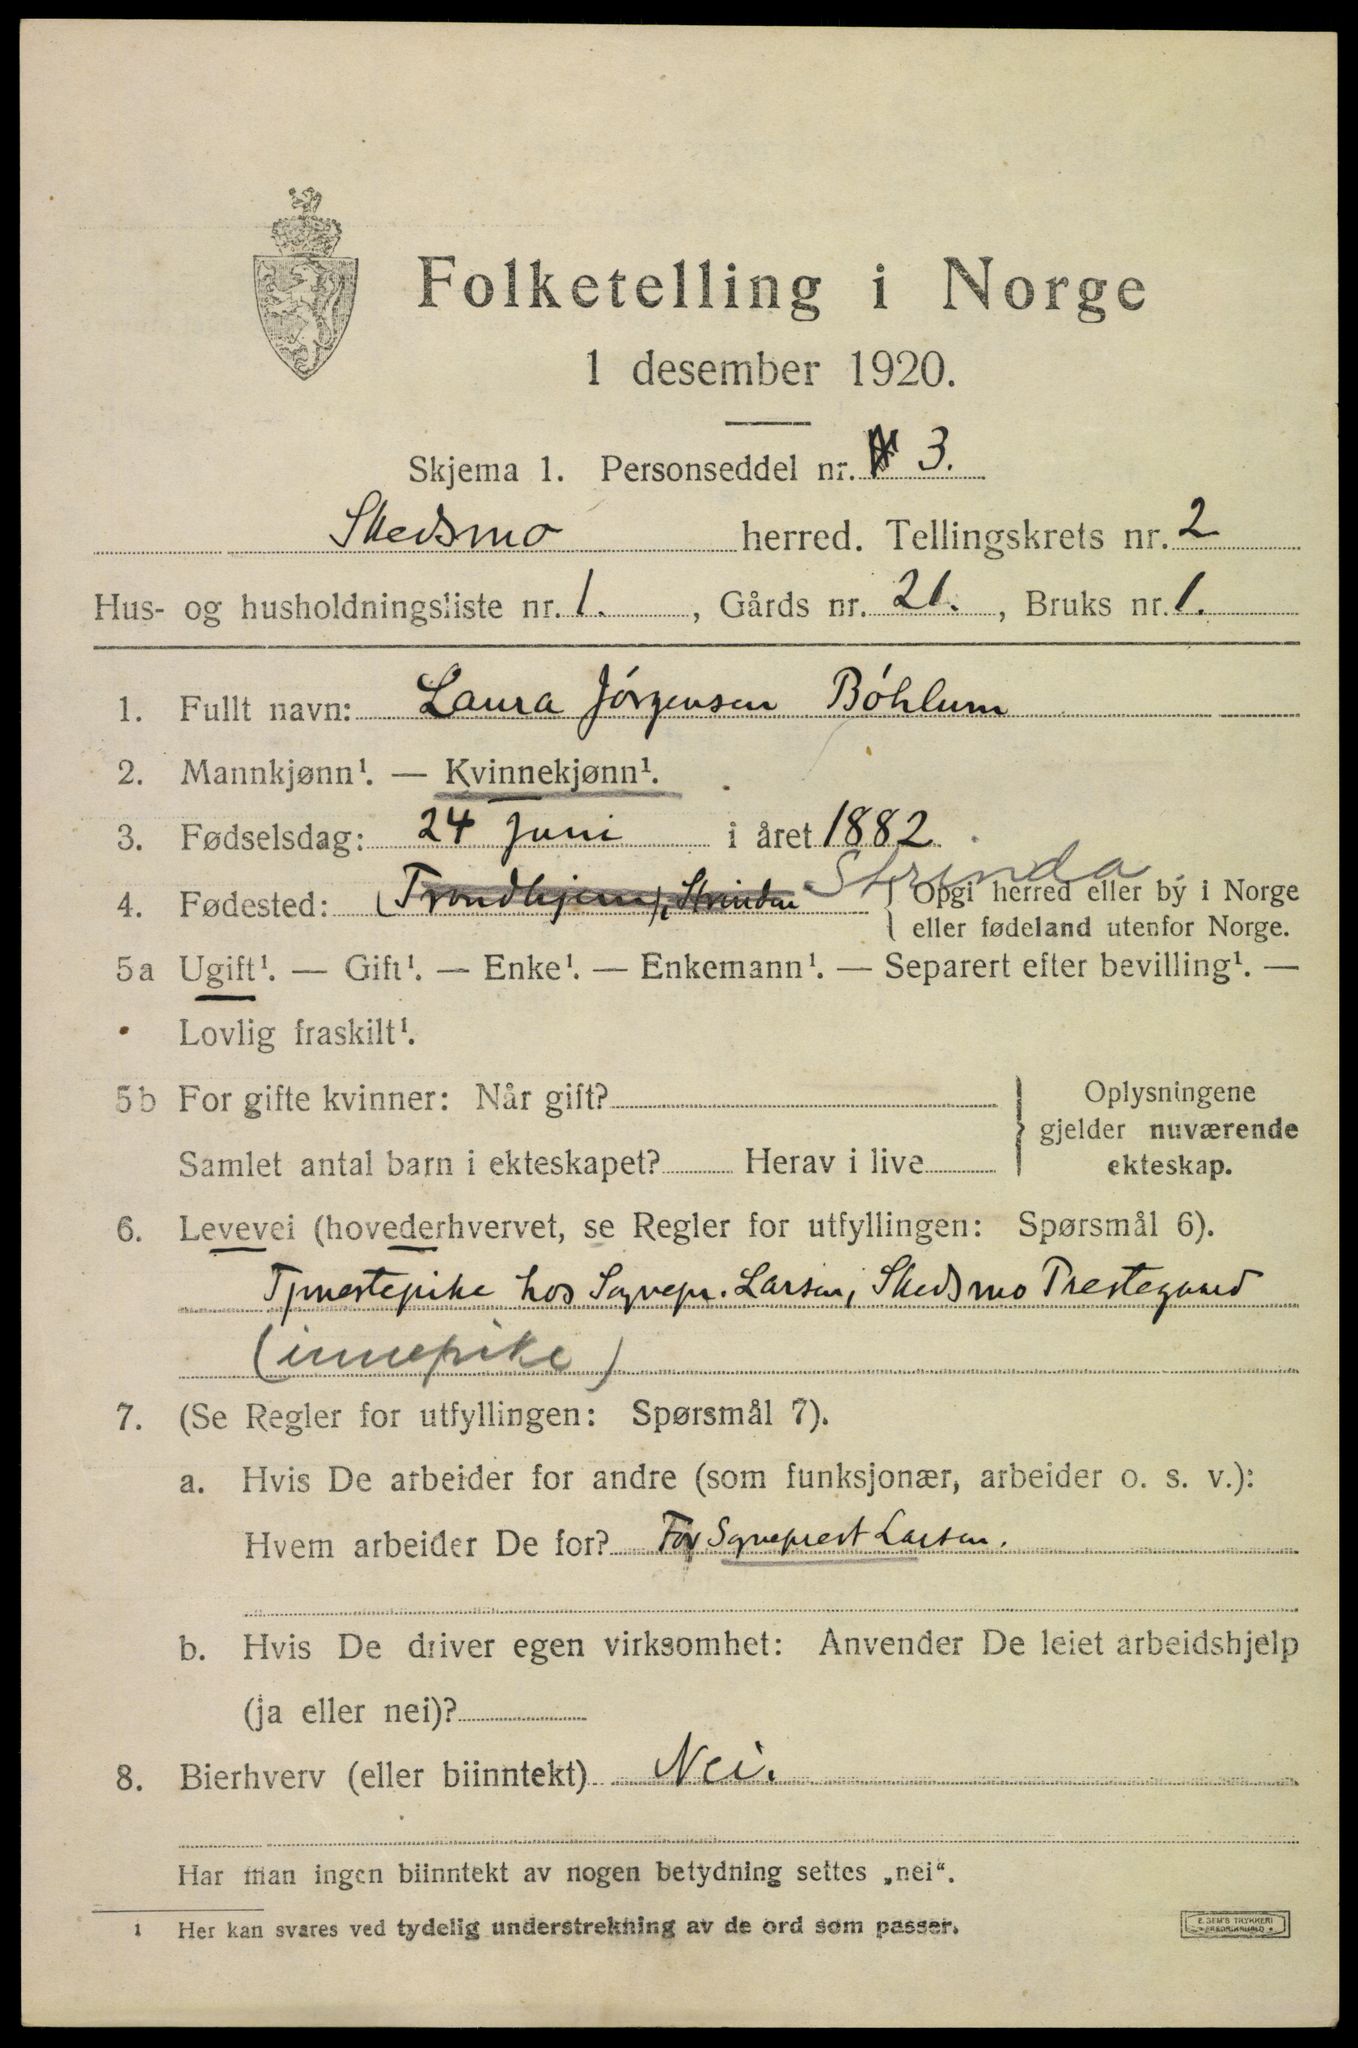 Folketelling i Norge
1 desember 1920.
Skjema 1. Personseddel nr. 3.
Skedsmo herred. Tellingskrets nr. 2
Hus- og husholdningsliste nr. 1., Gårds nr. 21., Bruks nr. 1.
1. Fullt navn: Laura Jórgensen Bóhlum
2. Mannkjønn¹. — Kvinnekjønn¹.
3. Fødselsdag: 24 juni i året 1882
4. Fødested: (Trondhjem), Strinden Strinda { Opgi herred eller by i Norge
eller fødeland utenfor Norge.
5a Ugift¹. — Gift¹. — Enke¹. — Enkemann¹. — Separert efter bevilling¹. —
Lovlig fraskilt¹.
5b For gifte kvinner: Når gift? } Oplysningene
gjelder nuværende
Samlet antal barn i ekteskapet? Herav i live
ekteskap.
6. Levevei (hovederhvervet, se Regler for utfyllingen: Spørsmål 6).
Tjenestepike hos Sognepr. Larsen, Skedsmo Prestegaard
(innepike)
7. (Se Regler for utfyllingen: Spørsmål 7).
a. Hvis De arbeider for andre (som funksjonær, arbeider o. s. v.):
Hvem arbeider De for? For Sogneprest Larsen.
b. Hvis De driver egen virksomhet: Anvender De leiet arbeidshjelp
(ja eller nei)?
8. Bierhverv (eller biinntekt) Nei.
Har man ingen biinntekt av nogen betydning settes „nei“.
1 Her kan svares ved tydelig understrekning av de ord som passer.
E. SEM'S TRYKKERI
FREDRIKSHALD